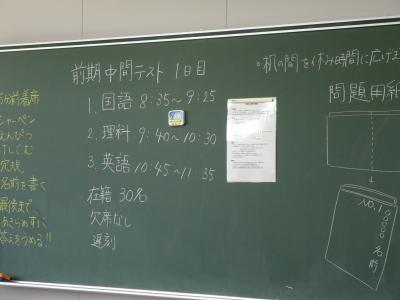 前期中間テスト 1日目
1.国語 8:35〜9:25
2.理科 9:40〜10:30
3.英語 10:45〜11:35
在籍 30名
欠席なし
遅刻
5分前着席
シャーペン
えんぴつ
けしごむ
定規
名前を書く
最後まで
あきらめずに
答えをつめる!!
。机の間を休み時間に広げる
問題用紙
NO.1
名前